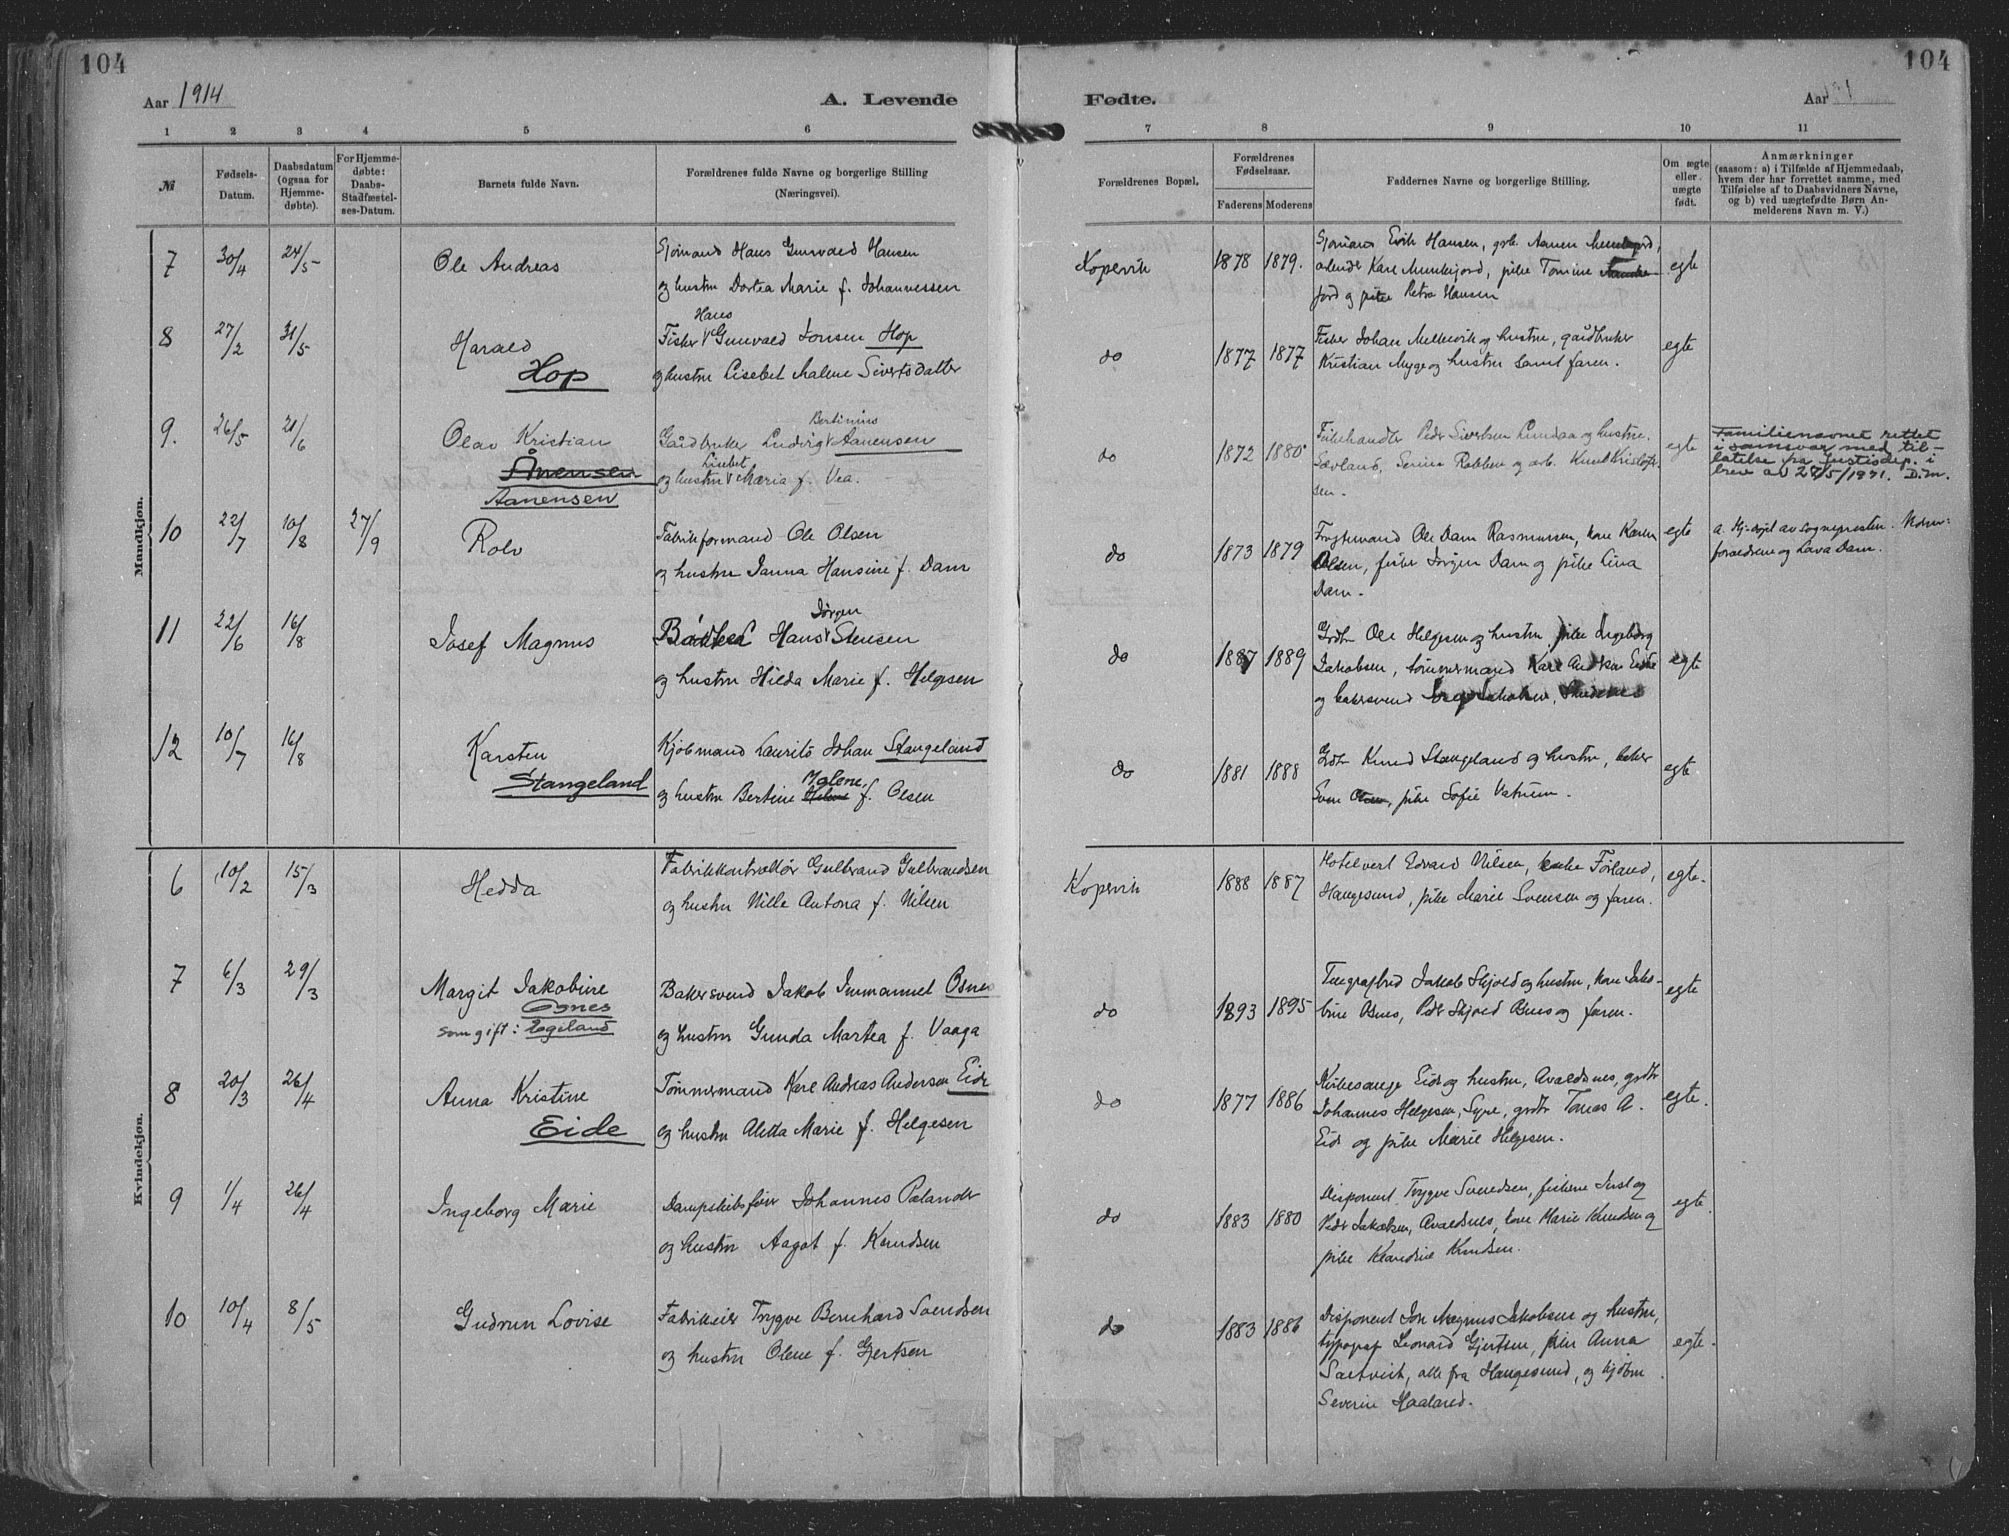 104
104
Aar 1914
A. Levende
Fødte.
Aar
1 2 3 4 5 6
7 8 9 10 11
№
Fødsels-
Datum.
Daabsdatum
(ogsaa for
Hjemme-
døbte).
For Hjemme-
døbte:
Daabs-
Stadfæstel-
ses-Datum.
Barnets fulde Navn.
Forældrenes fulde Navne og borgerlige Stilling
(Næringsvei).
Forældrenes Bopæl.
Forældrenes
Fødselsaar.
Faderens Moderens
Faddernes Navne og borgerlige Stilling.
Om ægte
eller
uægte
født.
Anmærkninger
(saasom: a) i Tilfælde af Hjemmedaab,
hvem der har forrettet samme, med
Tilføielse af to Daabsvidners Navne,
og b) ved uægtefødte Børn An-
melderens Navn m. V.)
Mandkjøn.
7 30/4 24/5 Ole Andreas
Sjømand Hans Gunvald Hansen
og hustru Dortea Marie f. Johannessen
Kopervik 1878 1879.
Sjømand Erik Hansen, grb. Aanen Munkejord,
arbeider Karl Munkejord, pike Tomine Munke-
jord og pike Petra Hansen
egte
8 27/2 31/5 Harald
Hop
Hans
Fisker Gunvald Tonsen Hop
og hustru Lisebet Malene Sivertsdatter
do 1877 1877
Fisker Johan Mellevik og hustru, gaardbruker
Kristian Myge og hustru samt faren.
egte
9. 26/5 21/6 Olav Kristian
Ånensen
Aanensen
Bertinius
Gaardbruker Ludvig Aanensen
Lisebet
og hustru Maria f. Vea.
do 1872 1880
Fiskehandler Peder Sivertsen Lundaa og hustru.
Sævland, Serina Rabben og arb. Knut Kristofer-
sen.
egte
Familienavnet rettet
i samsvar med til-
latelse fra Justisdep. i
brev av 27/5/1931. D.m.
10 22/7 10/8 27/9 Rolv
Fabrikformand Ole Olsen
og hustru Janna Hansine f. Dam
do 1873 1879
Frugtmand Ole Dam Rasmussen, kone Karen
Olsen, fisker Jørgen Dam og pike Lina
Dam.
egte
a. Hj.døpt av sognepresten.
forældrene og Lava Dam.
11 22/6 16/8 Josef Magnus
Jørgen
Hans Stensen
og hustru Hilda Marie f. Helgesen
do 1887 1889
Grdbr Ole Helgesen og hustru pike Ingeborg
Jakobsen, tømmermand Karl Andreas Eide
og bakersvend Jakobsen, Skudenes
egte
12 10/7 16/8 Karsten
Stangeland
Kjøbmand Laurits Johan Stangeland
Malene,
og hustru Bertine Helene f. Olsen
do 1881 1888
Grdbr Knud Stangeland og hustru, baker
Sven Olsen, pike Sofie Vatnem.
egte
Kvindekjøn.
6 10/2 15/3 Hedda
Fabrikkontrollør Gulbrand Gulbrandsen
og hustru Nille Antona f. Nilsen
Kopervik 1888 1887
Hotelvert Edvard Nilsen, enke Førland,
Haugesund, pike Marie Svensen og faren.
egte.
7 6/3 29/3 Margit Jakobine
Osnes
som gift: Egeland
Bakersvend Jakob Immanuel Osnes
og hustru Gunda Martea f. Vaaga
do 1893 1895
Telegrafbud Jakob Skjold og hustru, kone Jako-
bine Osnes, Peder Skjold Osnes og faren.
egte
8 20/3 26/4 Anna Kristine
Eide
Tømmermand Karl Andreas Andersen Eide
og hustru Aletta Marie f. Helgesen
do 1877 1886
Kirkesanger Eide og hustru, Avaldsnes, grdbr
Johannes Helgesen, Syre, grdbr Tomas A.
Eide og pike Marie Helgesen.
egte.
9 1/4 26/4 Ingeborg Marie
Dampskibsfører Johannes Palander
og hustru Aagot f. Knudsen
do 1883 1880
Disponent Trygve Svendsen, fiskerne Just og
Peder Jakobsen, Avaldsnes, kone Marie Knudsen og
pike Klaudine Knudsen.
egte.
10 10/4 8/5 Gudrun Lovise
Fabrikeier Trygve Bernhard Svendsen
og hustru Olene f. Gjertsen
do 1883 1886
Disponent Jon Magnus Jakobsen og hustru,
typograf Leonard Gjertsen, pike Anna
Sartveit, alle fra Haugesund, og kjøbm
Severin Haaland.
egte.